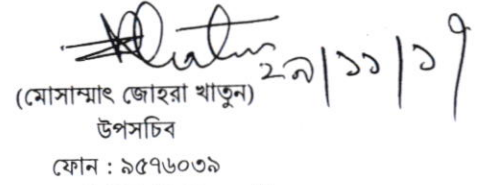 ২৯/১১/১৭
(মোসাম্মাৎ জোহরা খাতুন)
উপসচিব
ফোন : ৯৫৭৬০৩৯